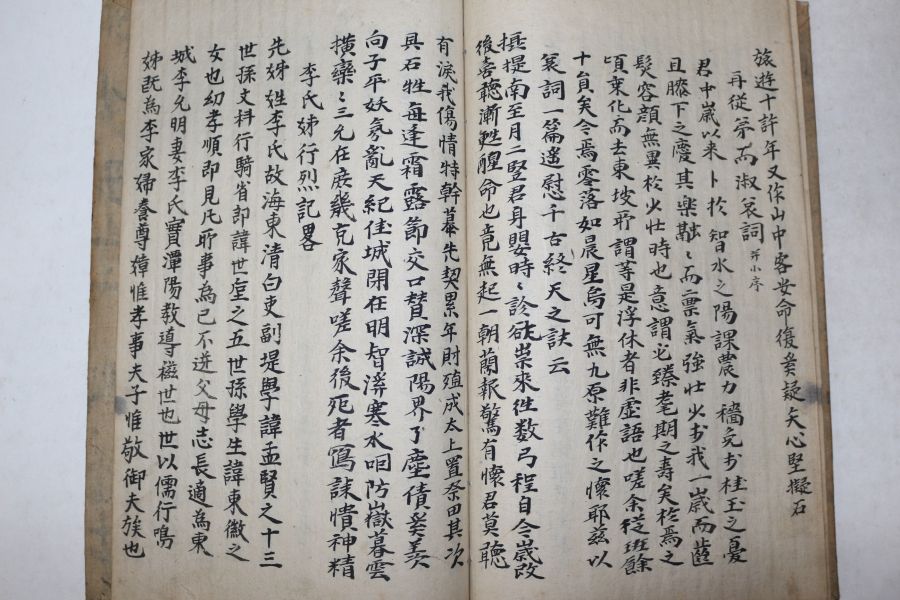 旅遊十許年又作山中客安命復奚疑矢心堅擬石
再從弟而淑哀詞 並小序
君中歲以来卜於智水之陽課農力穡免於桂玉之憂
且膝下之慶其樂融〻而禀氣強壯少於我一歲而齒
髮容顔無異於少壯時也意謂必臻耄期之壽矣於焉之
頃乘化而去東坡所謂等是浮休者非虛語也嗟余從班餘
十員矣今焉零落如晨星烏可無九原難作之懷耶玆以
哀詞一篇遙慰千古終天之訣云
攝提南至月二竪君身嬰時〻診欲祟來往数弓程自今歲改
後喜聽漸甦醒命也竟無起一朝蘭報驚有懷君莫聽
有淚我傷情特幹幕先契累年財殖成太上置祭田其次
具石牲每逢霜露節交口賛深誠陽界了塵債奚羨
向子平妖氛亂天紀佳城閉在明智濟寒水咽防嶽暮雲
橫欒〻三允在庶幾克家聲嗟余後死者寫誄憒神精
李氏姊行烈記畧
先姊姓李氏故海東清白吏副提學諱孟賢之十三
世孫文科行騎省郎諱世垕之五世孫學生諱東徽之
女也幼孝順即見凡所事為已不逆父母志長適為東
城李元明妻李氏實潭陽教導磁世也世以儒行鳴
姊既為李家婦養尊嫜惟孝事夫子惟敬御夫族也